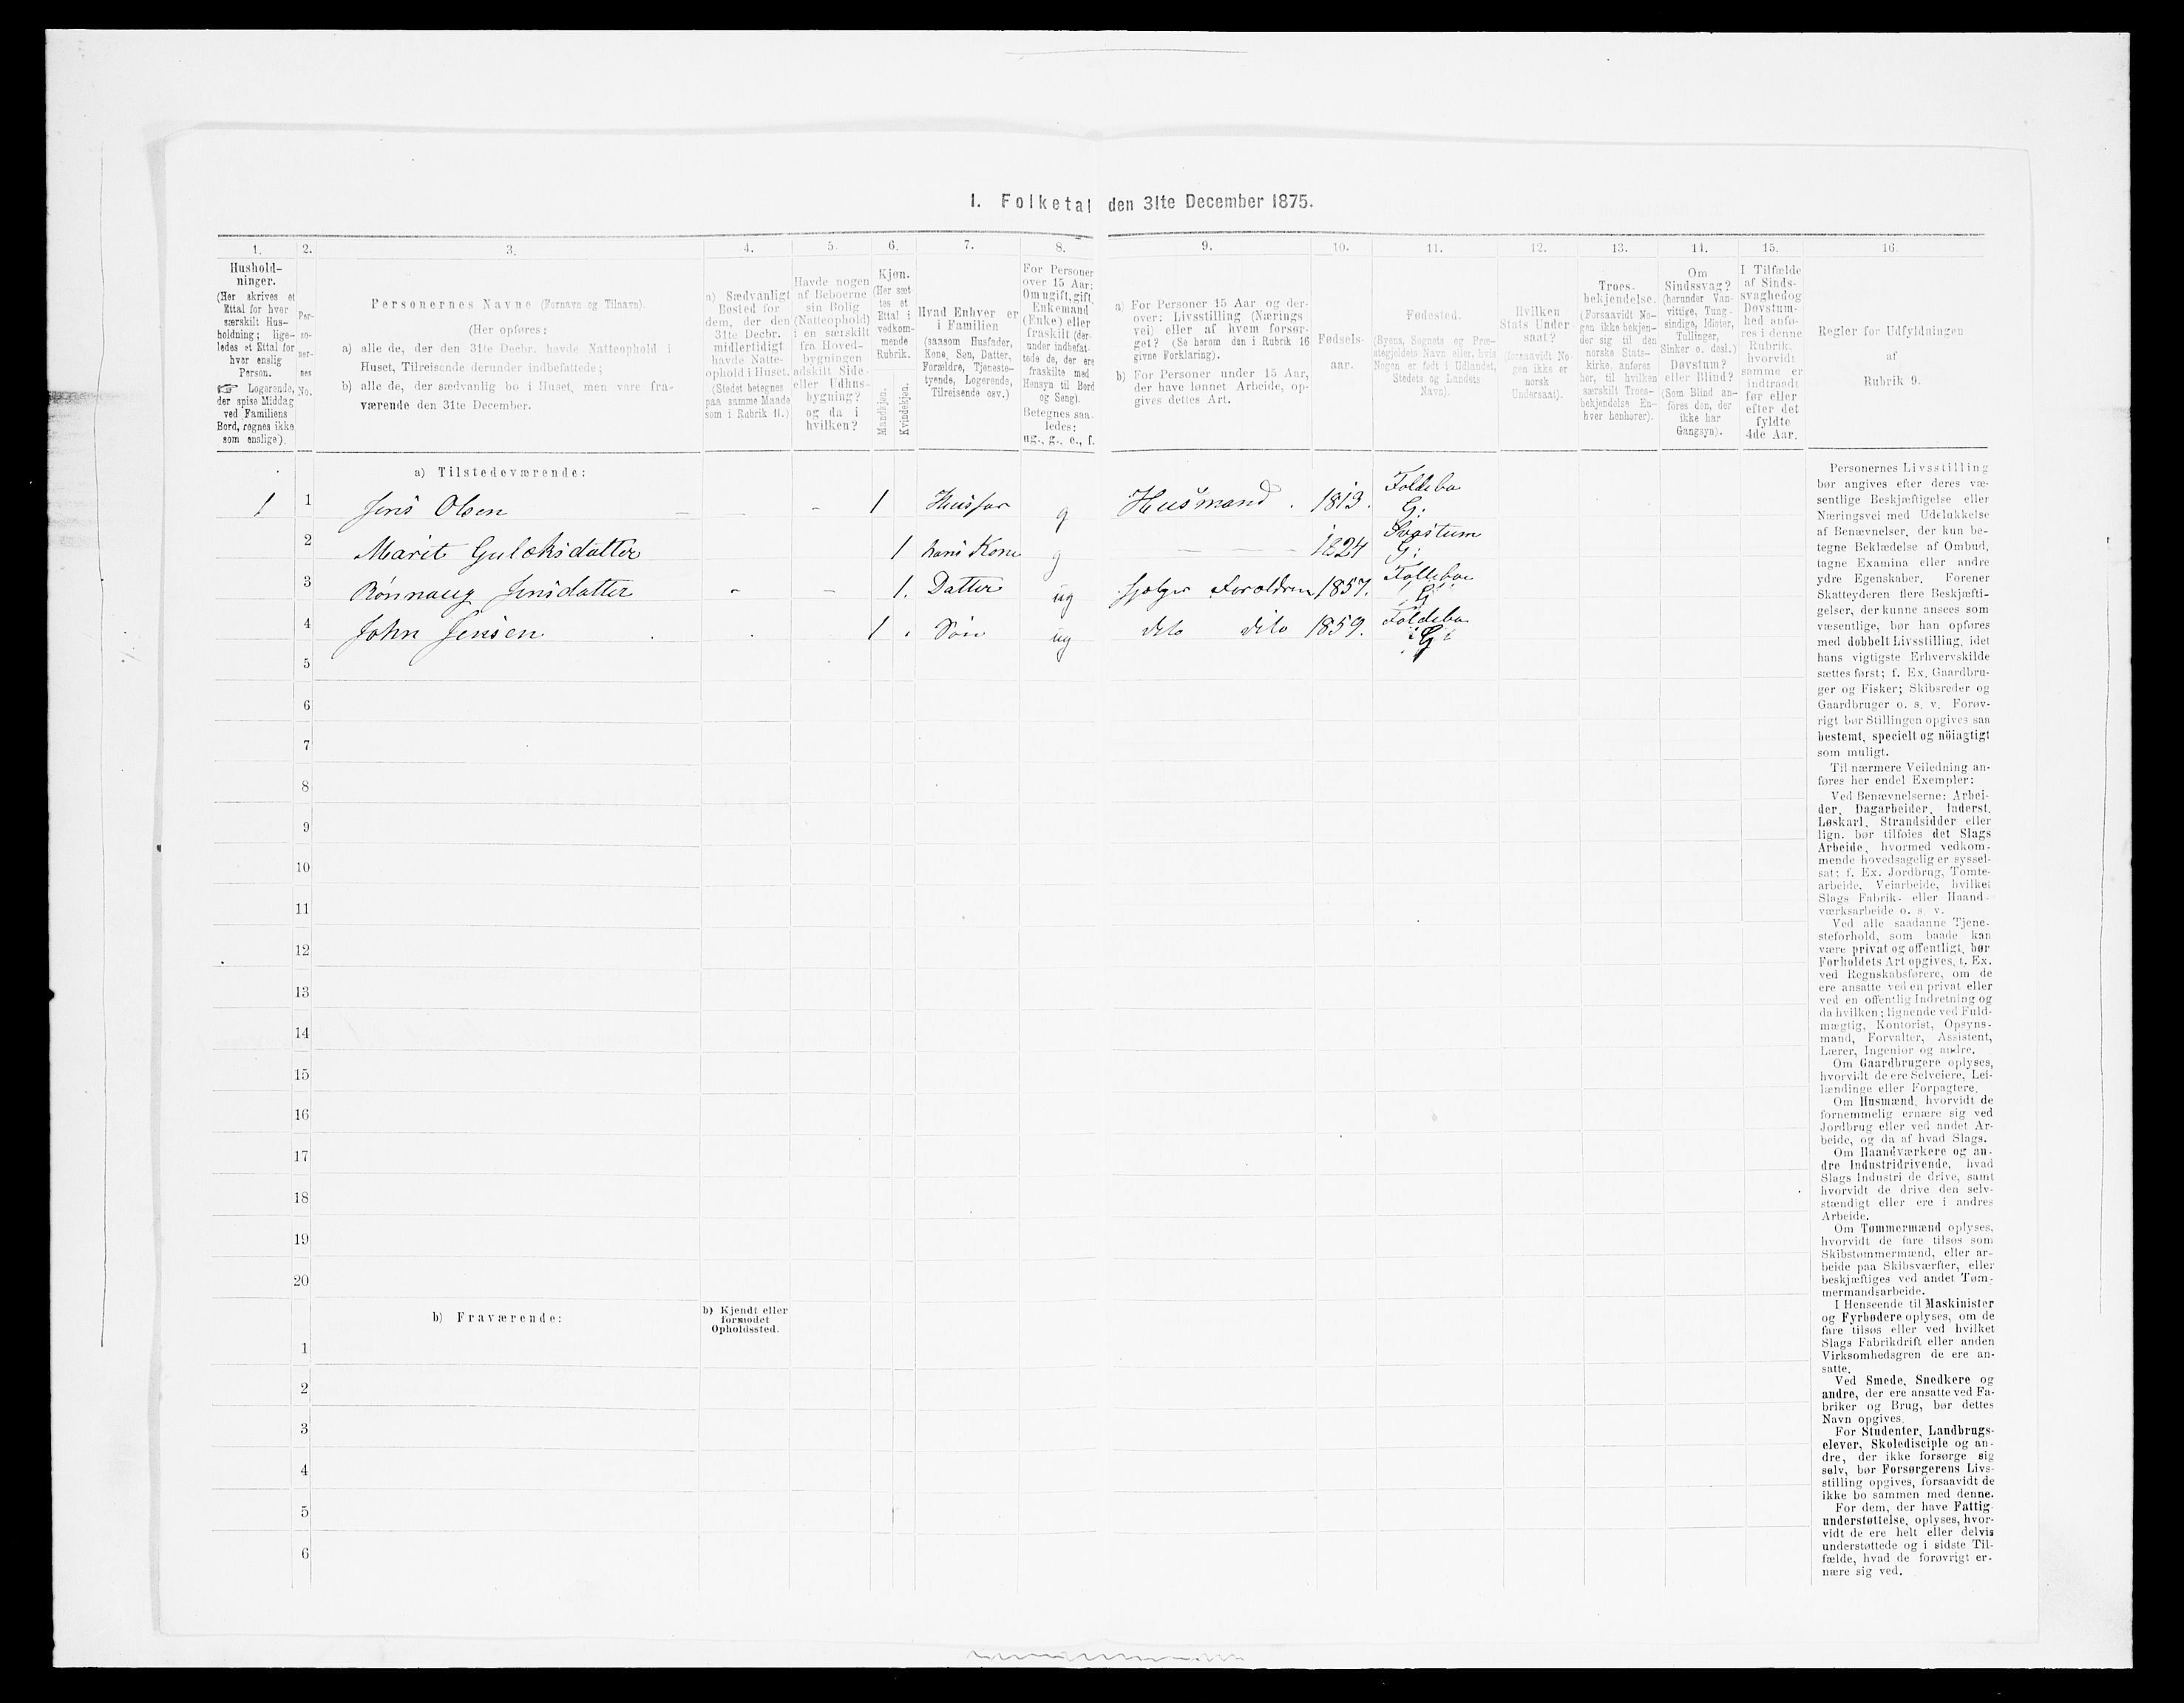 I. Folketal den 31te December 1875.
1. 2. 3. 4. 5. 6. 7. 8. 9. 10. 11. 12. 13. 14. 15. 16.
Hushold-
ninger.
(Her skrives et
Ettal for hver
særskilt Hus-
holdning; lige-
ledes et Ettal for
hver enslig
Person.
☞ Logerende,
der spise Middag
ved Familiens
Bord, regnes ikke
som enslige).
Per-
so-
ner-
nes
No.
Personernes Navne (Fornavn og Tilnavn).
(Her opføres:
a) alle de, der den 31te Decbr. havde Natteophold i
Huset, Tilreisende derunder indbefattede;
b) alle de, der sædvanlig bo i Huset, men vare fra-
værende den 31te December.
a) Sædvanligt
Bosted for
dem, der den
31te Decbr.
midlertidigt
havde Natte-
ophold i Huset.
(Stedet betegnes
paa samme Maade
som i Rubrik 11.)
Havde nogen
af Beboerne
sin Bolig
(Natteophold)
i en særskilt
fra Hoved-
bygningen
adskilt Side-
eller Udhus-
bygning?
og da i
hvilken?
Kjøn.
(Her sæt-
tes et
Ettal i
vedkom-
mende
Rubrik.
Mandkjøn.
Kvindekjøn.
Hvad Enhver er
i Familien
(saasom Husfader,
Kone, Søn, Datter,
Forældre, Tjeneste-
tyende, Logerende,
Tilreisende osv.)
For Personer
over 15 Aar:
Om ugift, gift,
Enkemand
(Enke) eller
fraskilt (der-
under indbefat-
tede de, der ere
fraskilte med
Hensyn til Bord
og Seng).
Betegnes saa-
ledes:
ug., g., e., f.
a) For Personer 15 Aar og der-
over: Livsstilling (Nærings
vei) eller af hvem forsør-
get? (Se herom den i Rubrik 16
givne Forklaring).
b) For Personer under 15 Aar,
der have lønnet Arbeide, op-
gives dettes Art.
Fødsels-
aar.
Fødested.
(Byens, Sognets og Præ-
stegjeldets Navn eller, hvis
Nogen er født i Udlandet,
Stedets og Landets
Navn).
Hvilken
Stats Under
saat?
(forsaavidt No-
gen ikke er
norsk
Undersaat).
Troes-
bekjendelse.
(Forsaavidt No-
gen ikke bekjen-
der sig til den
norske Stats-
kirke, anføres
her, til hvilken
særskilt Troes-
bekjendelse En-
hver henhører).
Om
Sindssvag?
(herunder Van-
vittige, Tung-
sindige, Idioter,
Tullinger,
Sinker o. desl.)
Døvstum?
eller Blind?
(Som Blind an-
føres den, der
ikke har
Gangsyn).
I Tilfælde
af Sinds-
svaghed og
Døvstum-
hed anfø-
res i denne
Rubrik,
hvorvidt
samme er
indtraadt
før eller
efter det
fyldte
4de Aar.
Regler for Udfyldningen
af
Rubrik 9.
a) Tilstedeværende:
1 1 Jens Olsen - - - 1 Husfar g Husmand. 1813. Foldebu G:
2 Marit Gulaksdatter 1 hans Kone g - - - 1824 G:
3 Rønnaug Jensdatter - - 1. Datter ug hjælper Forældrene 1857. Follebu G
4 John Jensen 1 Søn ug dito dito 1859. Foldebu G
5
6
7
8
9
10
11
12
13
14
15
16
17
18
19
20
b) Fraværende:
b) Kjendt eller
formodet
Opholdssted.
1
2
3
4
5
6
Personernes Livsstilling
bør angives efter deres væ-
sentlige Beskjæftigelse eller
Næringsvei med Udelukkelse
af Benævnelser, der kun be-
tegne Beklædelse af Ombud,
tagne Examina eller andre
ydre Egenskaber. Forener
Skatteyderen flere Beskjæfti-
gelser, der kunne ansees som
væsentlige, bør han opføres
med dobbelt Livsstilling, idet
hans vigtigste Erhvervskilde
sættes først; f. Ex. Gaardbru-
ger og Fisker; Skibsreder og
Gaardbruger o. s. v. Forøv-
rigt bør Stillingen opgives saa
bestemt, specielt og nöiagtigt
som muligt.
Til nærmere Veiledning an-
føres her endel Exempler:
Ved Benævnelserne: Arbei-
der, Dagarbeider, Inderst,
Løskarl, Strandsidder eller
lign. bør tilføies det Slags
Arbeide, hvormed vedkom-
mende hovedsagelig er syssel-
sat; f. Ex. Jordbrug, Tomte-
arbeide, Veiarbeide, hvilket
Slags Fabrik- eller Haand-
værksarbeide o. s. v.
Ved alle saadanne Tjene-
steforhold, som baade kan
være privat og offentligt, bør
Forholdets Art opgives, t. Ex.
ved Regnskabsførere, om de
ere ansatte ved en privat eller
ved en offentlig Indretning og
da hvilken; lignende ved Fuld-
mægtig, Kontorist, Opsyns-
mand, Forvalter, Assistent,
Lærer, Ingeniør og andre.
Om Gaardbrugere oplyses,
hvorvidt de ere Selveiere, Lei-
lændinge eller Forpagtere.
Om Husmænd, hvorvidt de
fornemmelig ernære sig ved
Jordbrug eller ved andet Ar-
beide, og da af hvad Slags.
Om Haandværkere og an-
dre Industridrivende, hvad
Slags Industri de drive, samt
hvorvidt de drive den selv-
stændigt eller ere i andres
Arbeide.
Om Tømmermænd oplyses,
hvorvidt de fare tilsøs som
Skibstømmermænd, eller ar-
beide paa Skibsværfter, eller
beskjæftiges ved andet Tøm-
mermandsarbeide.
I Henseende til Maskinister
og Fyrbødere oplyses, om de
fare tilsøs eller ved hvilket
Slags Fabrikdrift eller anden
Virksomhedsgren de ere an-
satte.
Ved Smede, Snedkere og
andre, der ere ansatte ved Fa-
briker og Brug, bør dettes
Navn opgives.
For Studenter, Landbrugs-
elever, Skoledisciple og an-
dre, der ikke forsørge sig
selv, bør Forsørgerens Livs-
stilling opgives, forsaavidt de
ikke bo sammen med denne.
For dem, der have Fattig-
understøttelse, oplyses, hvor-
vidt de ere helt eller delvis
understøttede og i sidste Til-
fælde, hvad de forøvrigt er-
nære sig ved.